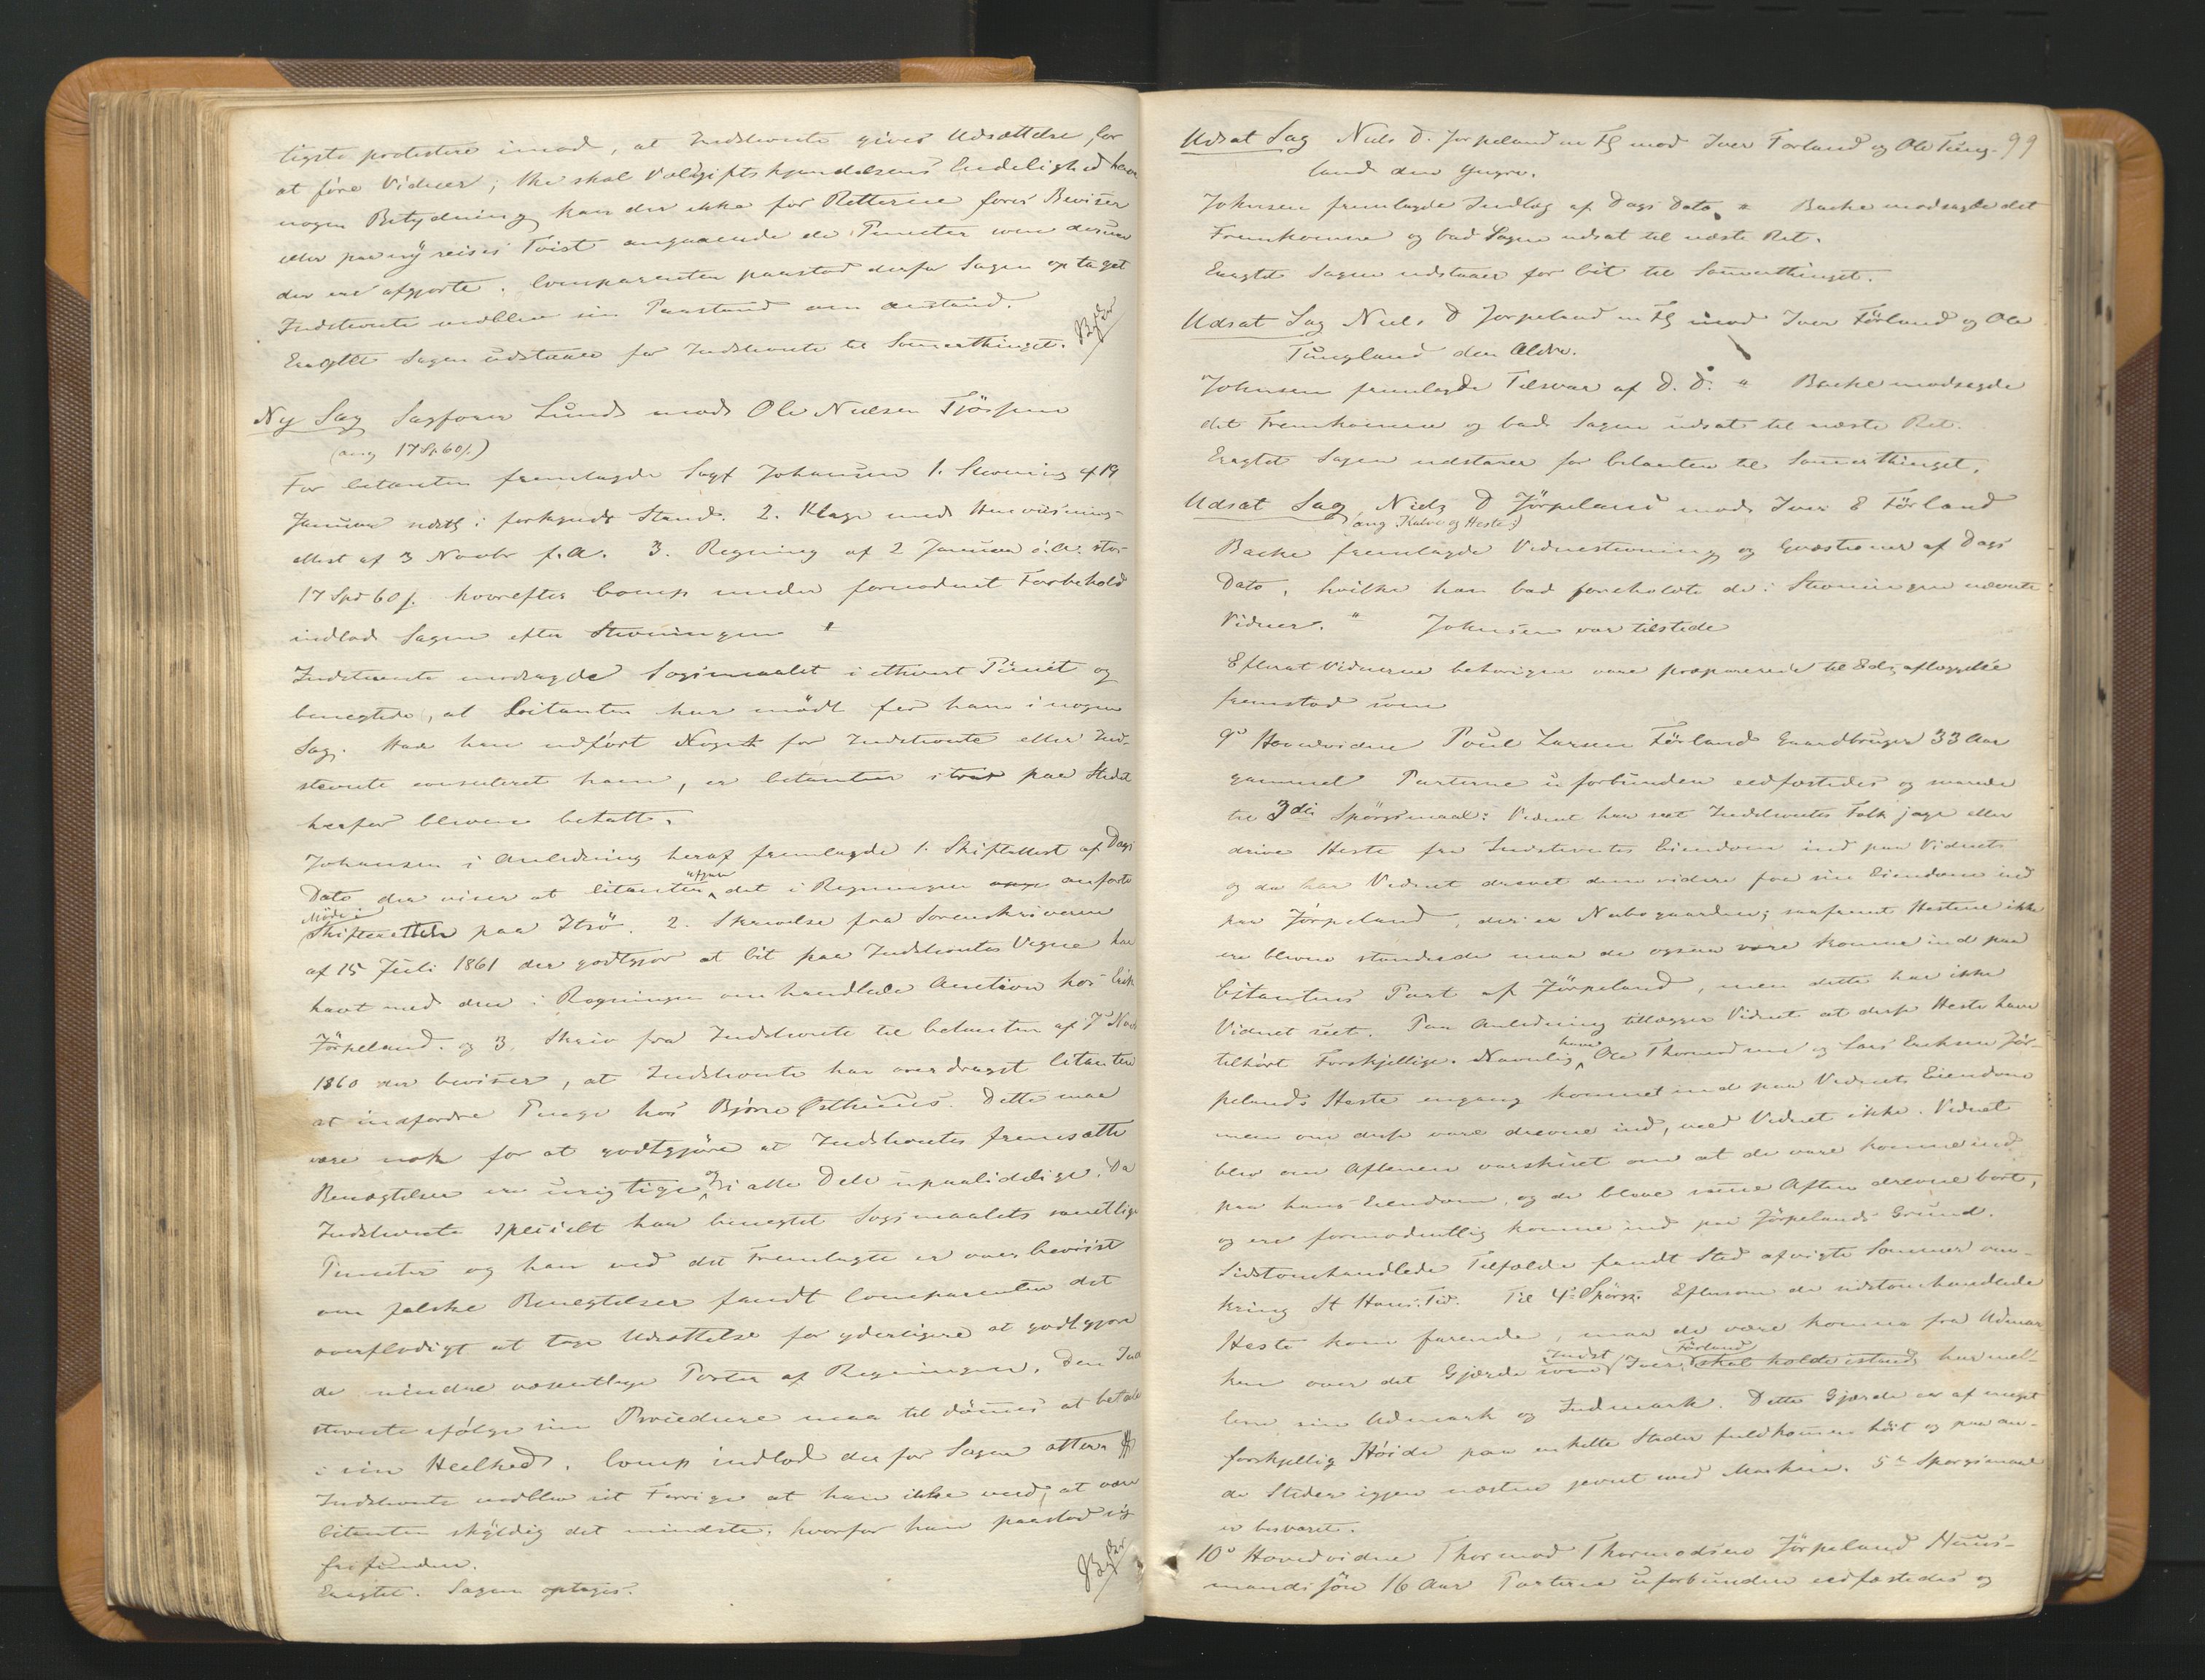 tigste protestere imod, at Indstevnte gives Udsættelse for
at före Vidner; thi skal Voldgiftskjendelsens Endelighed have
nogen Betydning kan der ikke for Retterne föres Beviser
eller paa ny reises Tvist angaaende de Puncter som derved
der ere afgjorte. Comparenten paastod derfor Sagen optaget
Indstevnte vedblev sin Paastand om Anstand.
Eragtet Sagen udstaaer for Indstevnte til Sommerthinget.
Ny Sag Sagförer Lund mod Ole Nielsen Fjösne
(ang 17 Sp. 60 ſ.)
For Citanten fremlagde Sagf Johansen 1. Stevning af 19
Januar sidstl i forkyndt Stand. 2. Klage med Henviisnings-
attest af 3 Novbr f.A. 3. Regning af 2 Januar d.A. stor
17 Spd 60 ſ. hvorefter Comp under fornødent Forbehold
indlod Sagen efter Stevningen "
Indstevnte modsagde Sogsmaalet i ethvert Punct og
benegtede, at Citanten har mödt for ham i nogen
Sag. Har han udfört Noget for Indstevnte eller Ind-
stevnte consuleret ham, er Citanten strax paa Stedet
herfor bleven betalt.
Johansen i Anledning heraf fremlagde 1. Skifteattest af Dags
Dato der viser at Citanten det i Regningen anförte
Möde i
Skifteretten paa Idsö. 2. Skrivelse fra Sorenskriveren
af 15 Juli 1861 der godtgjör at Cit paa Indstevntes Vegne har
havt med den i Regningen omhandlede Auction hos Erik
Jörpeland. og 3. Skriv fra Indstevnte til Citanten af 7 Novb
1860 der beviser, at Indstevnte har overdraget Citanten
at indfordre Penge hos Bjørn Østhuus. Dette maa
være nok for at godtgjöre at Indstevntes fremsatte
Benægtelser ere urigtige og i alle Dele upaalidelige. Da
Indstevnte specielt har benegtet Sogsmaalets samtlige
Puncter og han ved det Fremlagte er overbeviist
om falske Benegtelser fandt Comparenten det
overflødigt at tage Udsættelse for yderligere at godtgjøre
de mindre væsentlige Poster af Regningen. Den Ind
stevnte ifølge sin Procedure maa til dömmes at betale
i sin Heelhed. Comp indlod derfor Sagen atter.
Indstevnte vedblev sit Forrige at han ikke veed, at være
Citanten skyldig det mindste, hvorfor han paastod sig
frifunden.
Eragtet. Sagen optages.
99
Udsat Sag Niels D. Jørpeland m Fl mod Iver Førland og Ole Tung-
land den Yngre.
Johnsen fremlagde Indlæg af Dags Dato. " Backe modsagde det
Fremkomne og bad Sagen udsat til næste Ret.
Eragtet Sagen udstaaer for Cit til Sommerthinget.
Udsat Sag Niels D Jørpeland m Fl imod Iver Förland og Ole
Tungland den Ældre.
Johnsen fremlagde Tilsvar af D. D. " Backe modsagde
det Fremkomne og bad Sagen udsat til næste Ret.
Eragtet Sagen udstaaer for Citanten til Sommerthinget.
Udsat Sag Niels D Jörpeland mod Iver E Förland
(ang Kalve og Heste)
Backe fremlagde Vidnestevning og Qvæstioner af Dags
Dato, hvilke han bad foreholdte de i Stevningen nævnte
Vidner. " Johnsen var tilstede
Efterat Vidnerne behørigen vare præparerede til Eds aflæggelse
fremstod som
9de Hovedvidne Poul Larsen Förland Gaardbruger 33 Aar
gammel Parterne uforbunden eedfæstedes og svarede
til 3die Spörgsmaal: Vidnet har seet Indstevntes Folk jage eller
drive Heste fra Indstevntes Eiendom ind paa Vidnets
og da har Vidnet drevet dem videre fra sin Eiendom ind
paa Jörpeland, der er Nabogaarden; saafremt Hestene ikke
ere blevne standsede maa de ogsaa være komne ind paa
Citantens Part af Jörpeland, men dette har ikke
Vidnet seet. Paa Anledning tillægger Vidnet at disse Heste have
tilhört Forskjellige. Navnlig have Ole Thormodsens og Lars Eriksen Jör-
pelands Heste engang kommet ind paa Vidnets Eiendom
men om disse vare drevne ind, veed Vidnet ikke. Vidnet
blev om Aftenen varskuet om at de vare komne ind
paa hans Eiendom, og de bleve samme Aften drevne bort,
og ere formodentlig komne ind paa Jörpelands Grund.
Sidstomhandlede Tilfælde fandt Sted afvigte Sommer om-
kring St Hans Tid. Til 4de Spörgs. Eftersom de sidstomhandlede
Heste kom farende, maa de være komne fra Udmar
ken over det Gjærde som Indst Iver Förland skal holde istand har mel-
lem sin Udmark og Indmark. Dette Gjærde er af meget
forskjellig Höide paa enkelte Steder fuldkommen höit og paa an-
dre Steder igjen næsten jevnt med Marken. 5te Spörgsmaal
er besvaret.
10de Hovedvidne Thormod Thormodsen Jörpeland Huus-
mands Sön 16 Aar Parterne uforbunden eedfæstedes og